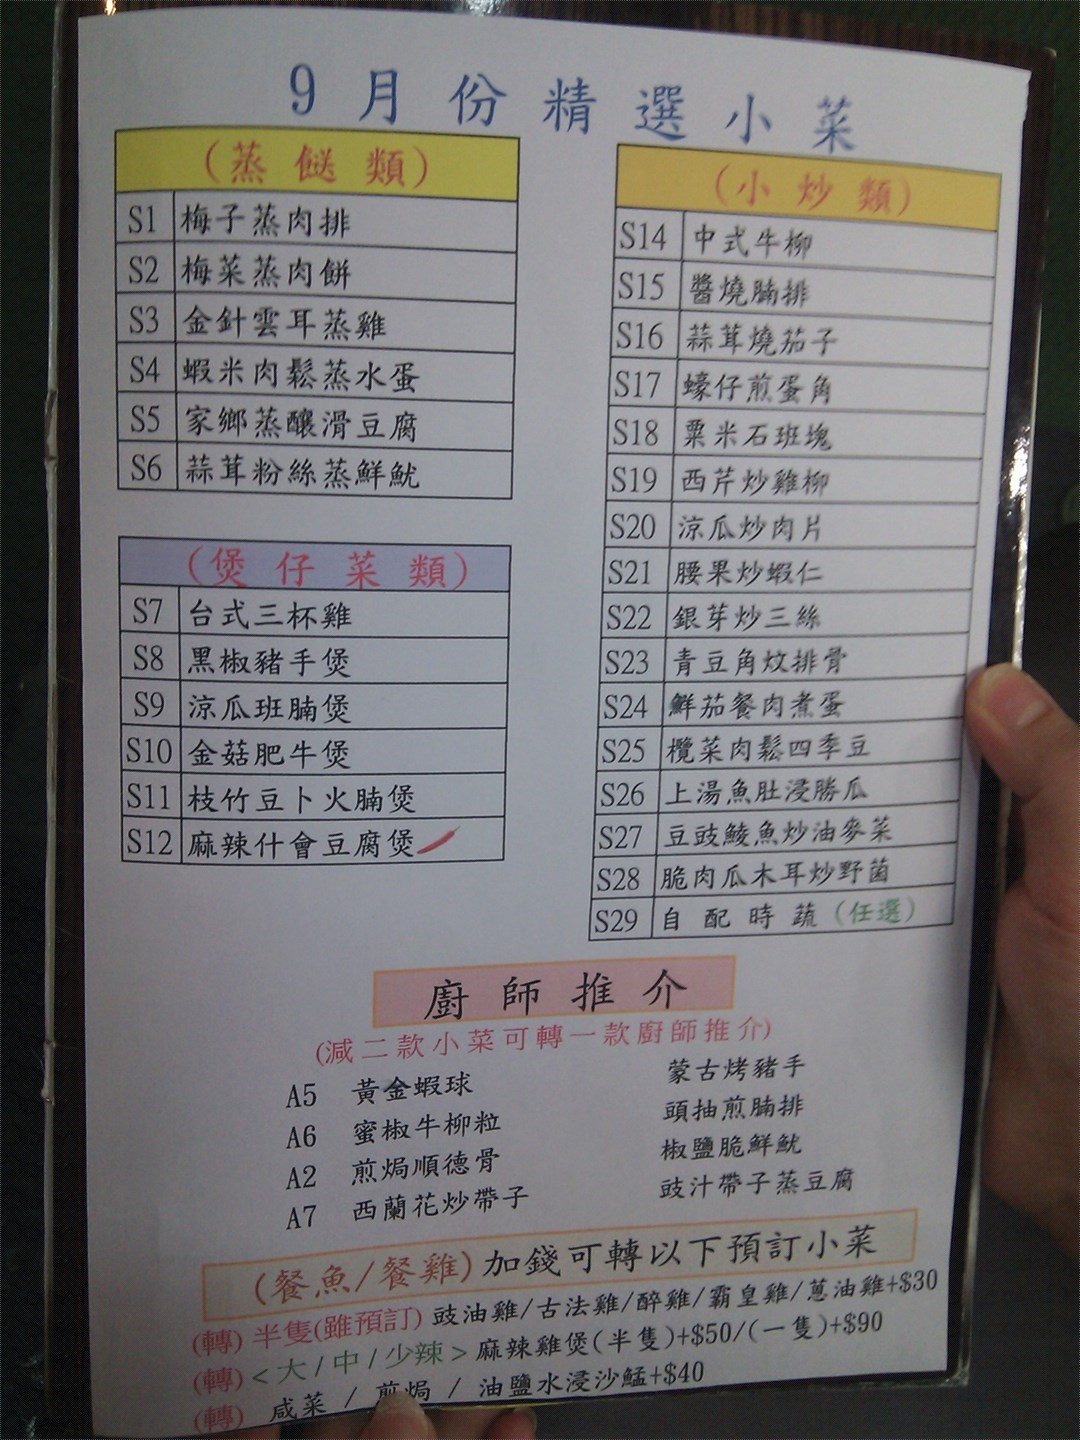 9月份精選小菜
(蒸餸類)
S1 梅子蒸肉排
S2 梅菜蒸肉餅
S3 金針雲耳蒸雞
S4 蝦米肉鬆蒸水蛋
S5 家鄉蒸釀滑豆腐
S6 蒜茸粉絲蒸鮮魷
(煲仔菜類)
S7 台式三杯雞
S8 黑椒豬手煲
S9 涼瓜班腩煲
S10 金菇肥牛煲
S11 枝竹豆卜火腩煲
S12 麻辣什會豆腐煲
(小炒類)
S14 中式牛柳
S15 醬燒腩排
S16 蒜茸燒茄子
S17 蠔仔煎蛋角
S18 粟米石班塊
S19 西芹炒雞柳
S20 涼瓜炒肉片
S21 腰果炒蝦仁
S22 銀芽炒三絲
S23 青豆角炆排骨
S24 鮮茄餐肉煮蛋
S25 欖菜肉鬆四季豆
S26 上湯魚肚浸勝瓜
S27 豆豉鯪魚炒油麥菜
S28 脆肉瓜木耳炒野菌
S29 自配時蔬(任選)
廚師推介
(減二款小菜可轉一款廚師推介)
A5 黃金蝦球
A6 蜜椒牛柳粒
A2 煎焗順德骨
A7 西蘭花炒帶子
蒙古烤豬手
頭抽煎腩排
椒鹽脆鮮魷
豉汁帶子蒸豆腐
(餐魚/餐雞)加錢可轉以下預訂小菜
(轉) 半隻(雖預訂) 豉油雞/古法雞/醉雞/霸皇雞/蔥油雞+$30
(轉) <大/中/少辣> 麻辣雞煲(半隻)+$50/(一隻)+$90
(轉) 咸菜 / 煎焗 / 油鹽水浸沙鯭+$40